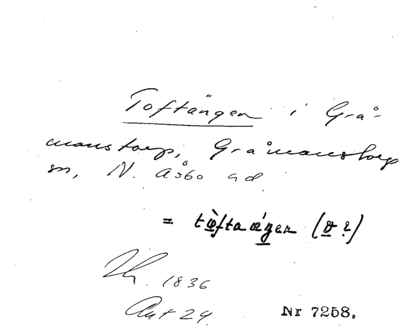 Toftängen i Grå-
manstorp, Gråmanstorp
sn, N. Åsbo hd
= toftaängen (o?)
1836
Akt 24.
Nr 7258.